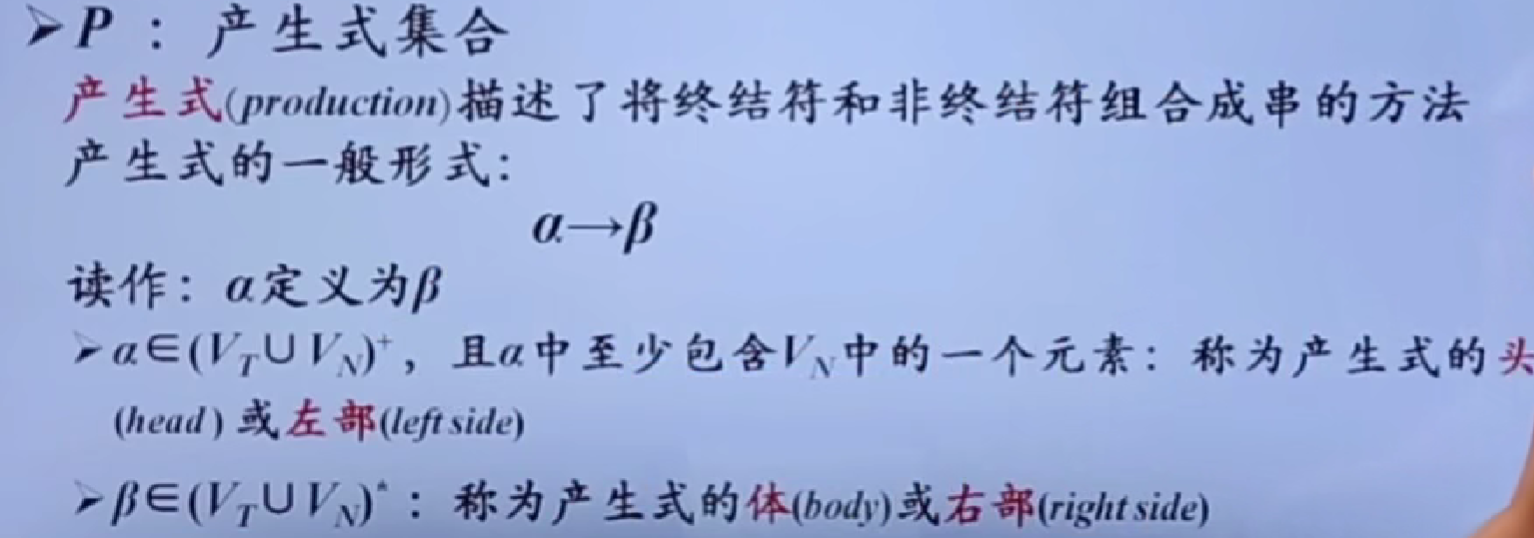 ➢P：产生式集合
产生式(production)描述了将终结符和非终结符组合成串的方法
产生式的一般形式：
α→β
读作：α定义为β
➢α∈(V_T∪V_N)⁺，且α中至少包含V_N中的一个元素：称为产生式的头
(head) 或左部(left side)
➢β∈(V_T∪V_N)*：称为产生式的体(body)或右部(right side)